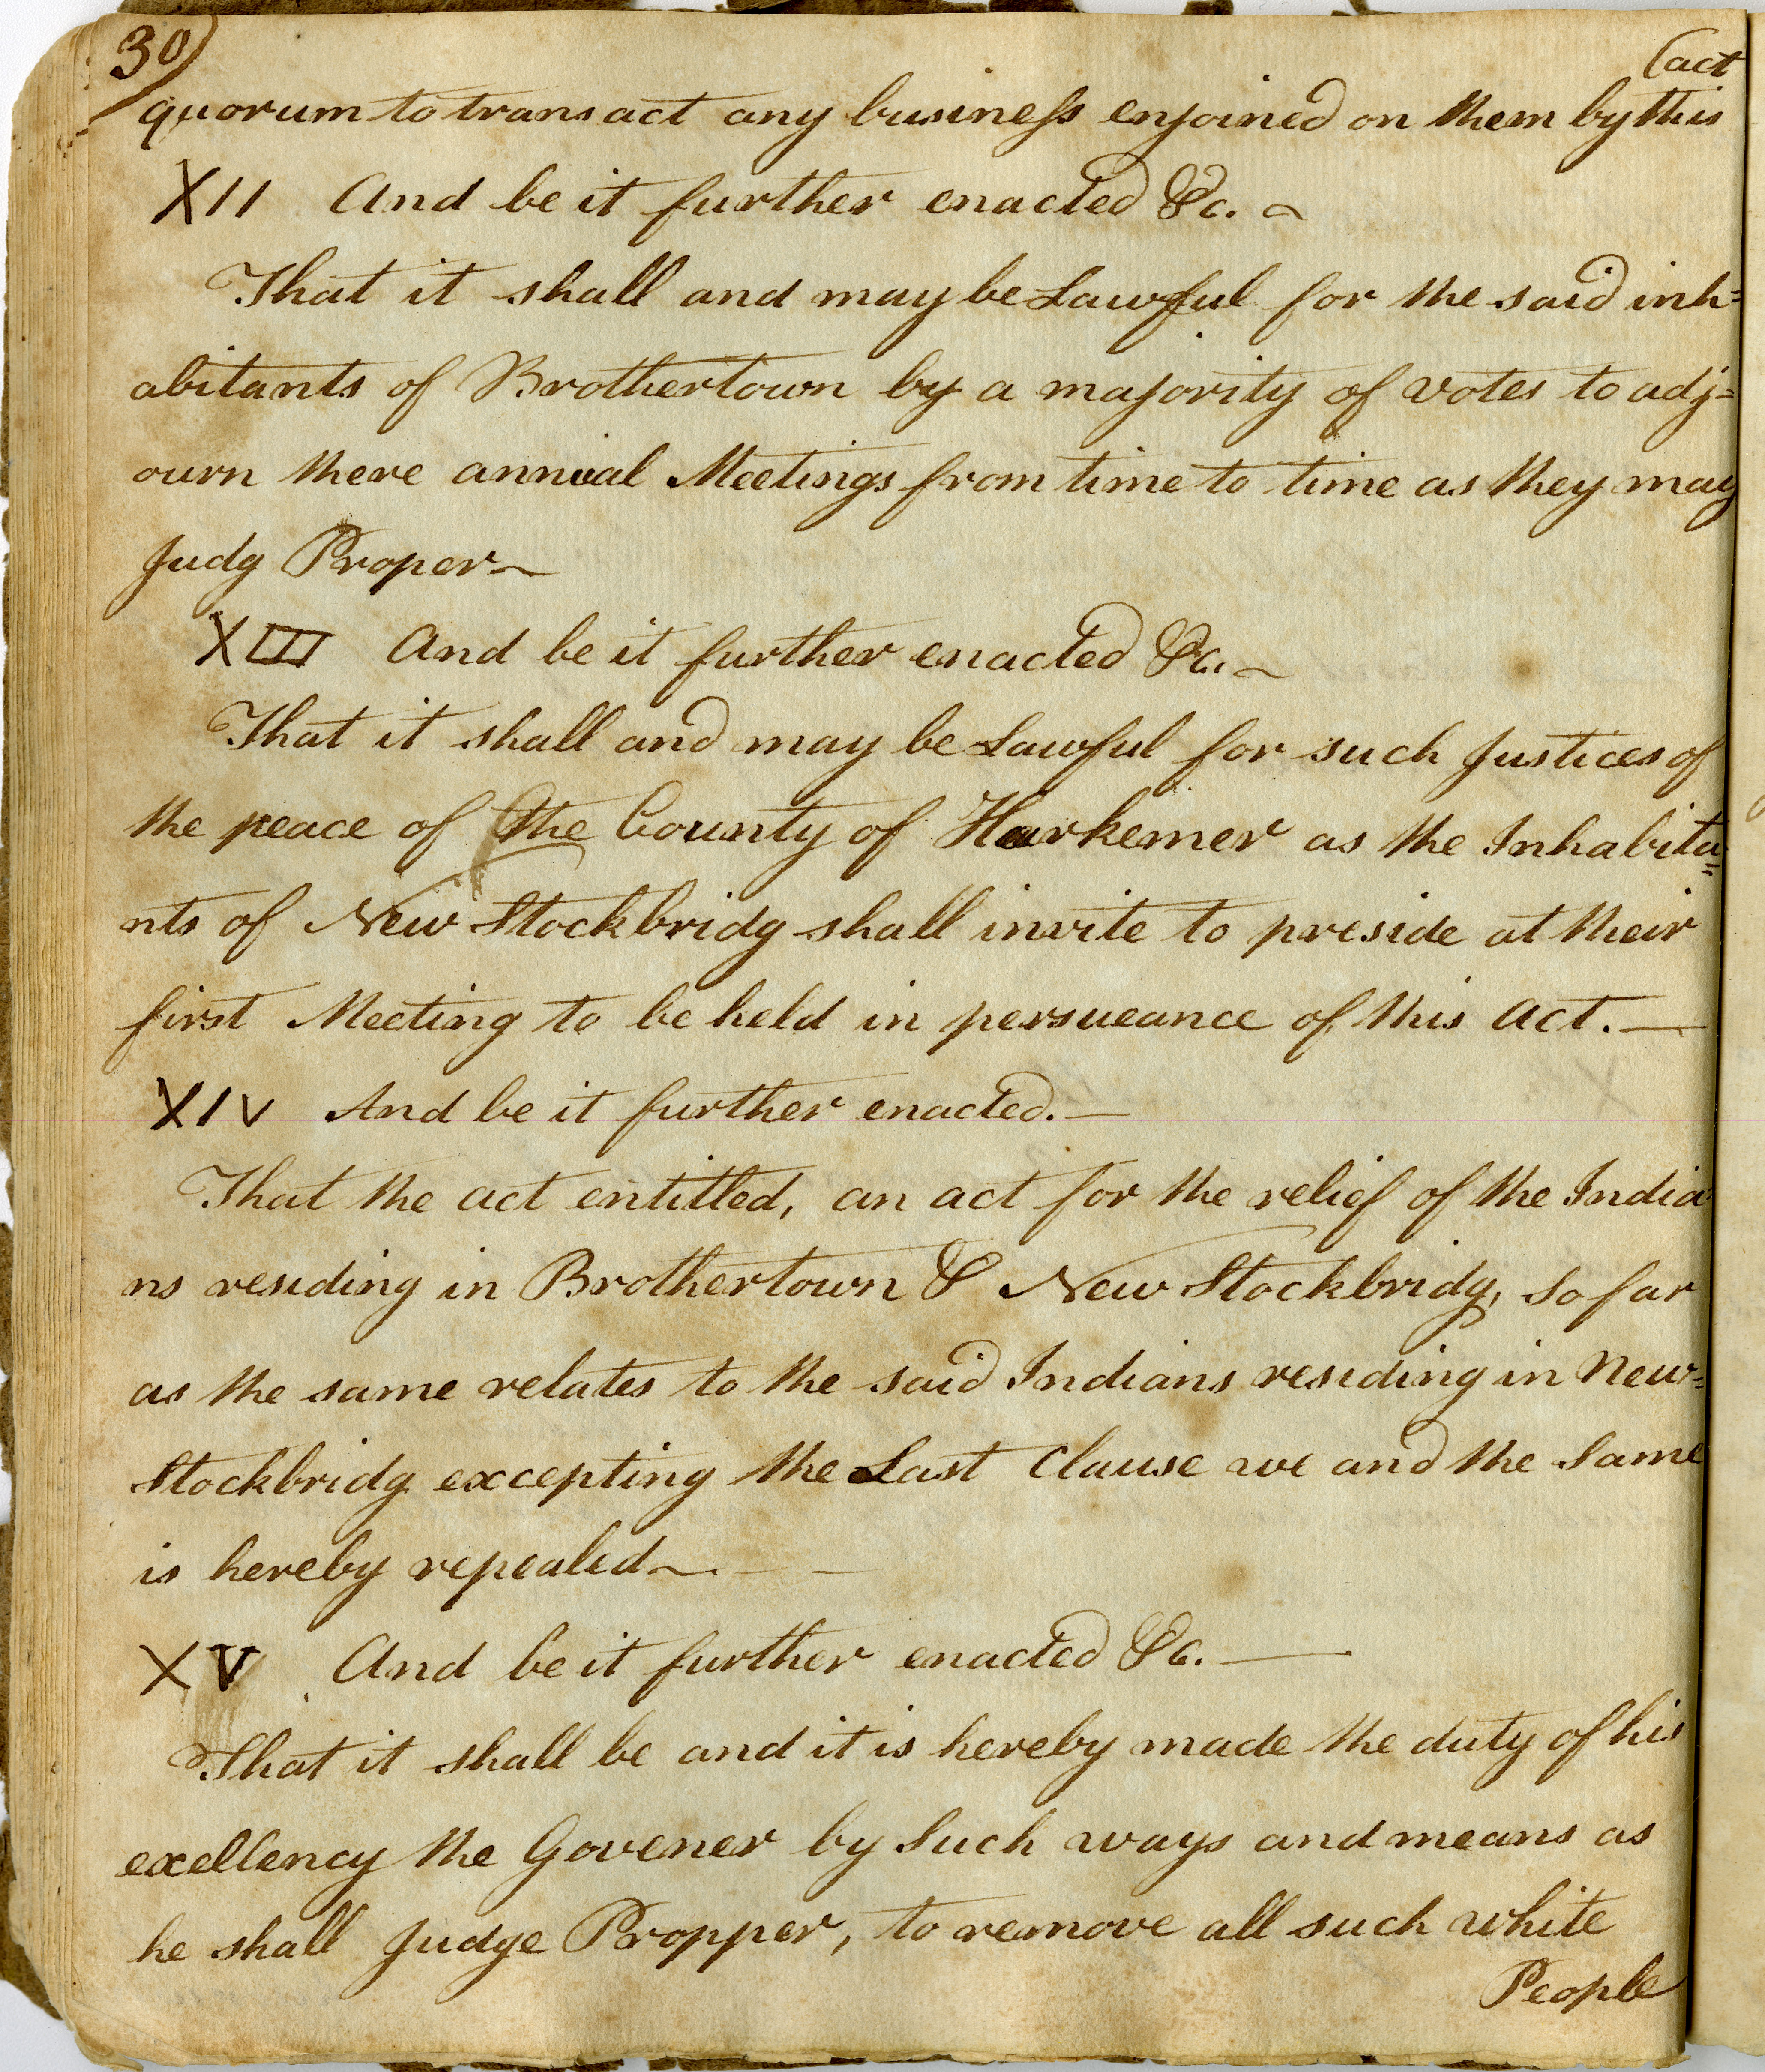 30)
(act
quorum to transact any business enjoined on them by this
XII And be it further enacted &c. ~
That it shall and may be Lawful for the said inh=
abitants of Brothertown by a majority of votes to adj=
ourn there annual Meetings from time to time as they may
Judg Proper ~
XIII And be it further enacted &c. ~
That it shall and may be Lawful for such Justices of
the peace of the County of Harkemer as the Inhabita=
nts of New Stockbridg shall invite to preside at their
first Meeting to be held in persueance of this act. —
XIV And be it further enacted. —
That the act entitled, an act for the relief of the India=
ns residing in Brothertown & New Stockbridg, So far
as the same relates to the said Indians residing in New=
Stockbridg excepting the Last Clause we and the Same
is hereby repealed ~. — —
XV And be it further enacted &c. —
That it shall be and it is hereby made the duty of his
exellency the Govener by Such ways and means as
he shall Judge Propper, to remove all such white
People